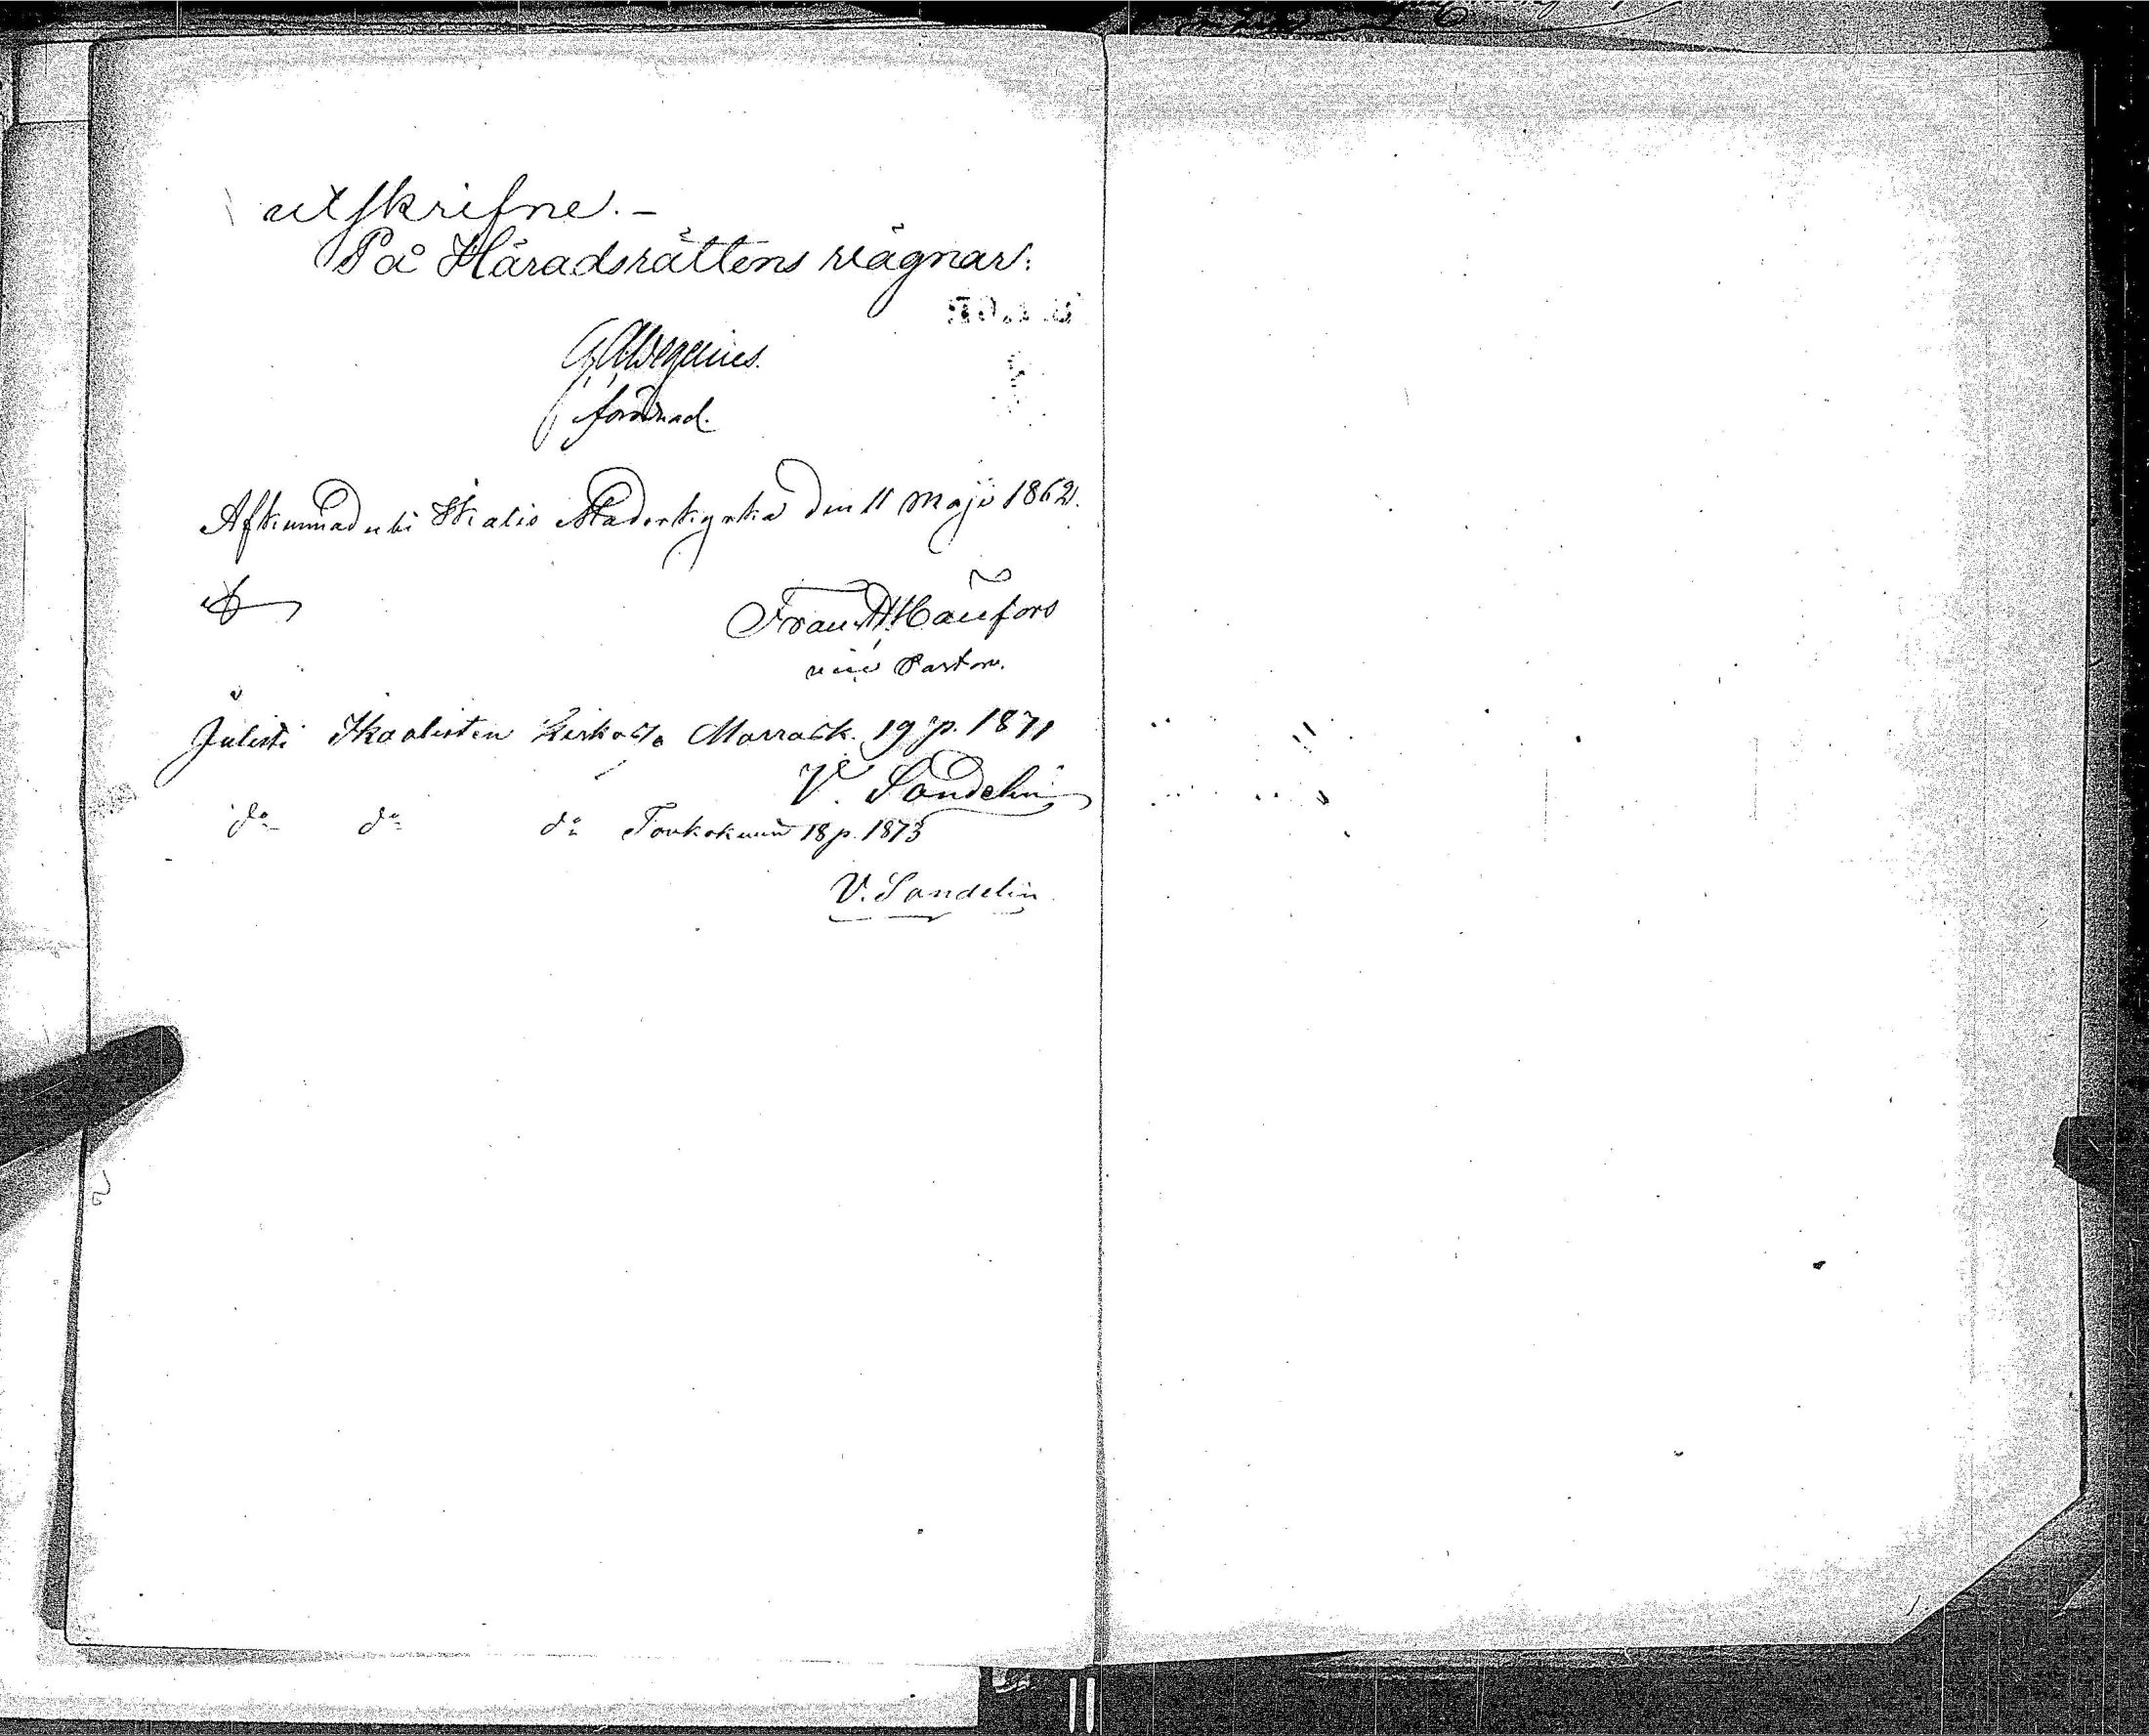 utskrifne. –
På Häradsrättens vägnar:
förordnad.
Afkunnad uti Ikalis Moderkyrka den 11 Maji 1862.
Frans H: Haufors
vice Pastor.
Julisti Ikaalisten Kirkossa Marrask. 19 p. 1871
V. Sandelin
do do do Toukokuun 18 p. 1873
V. Sandelin